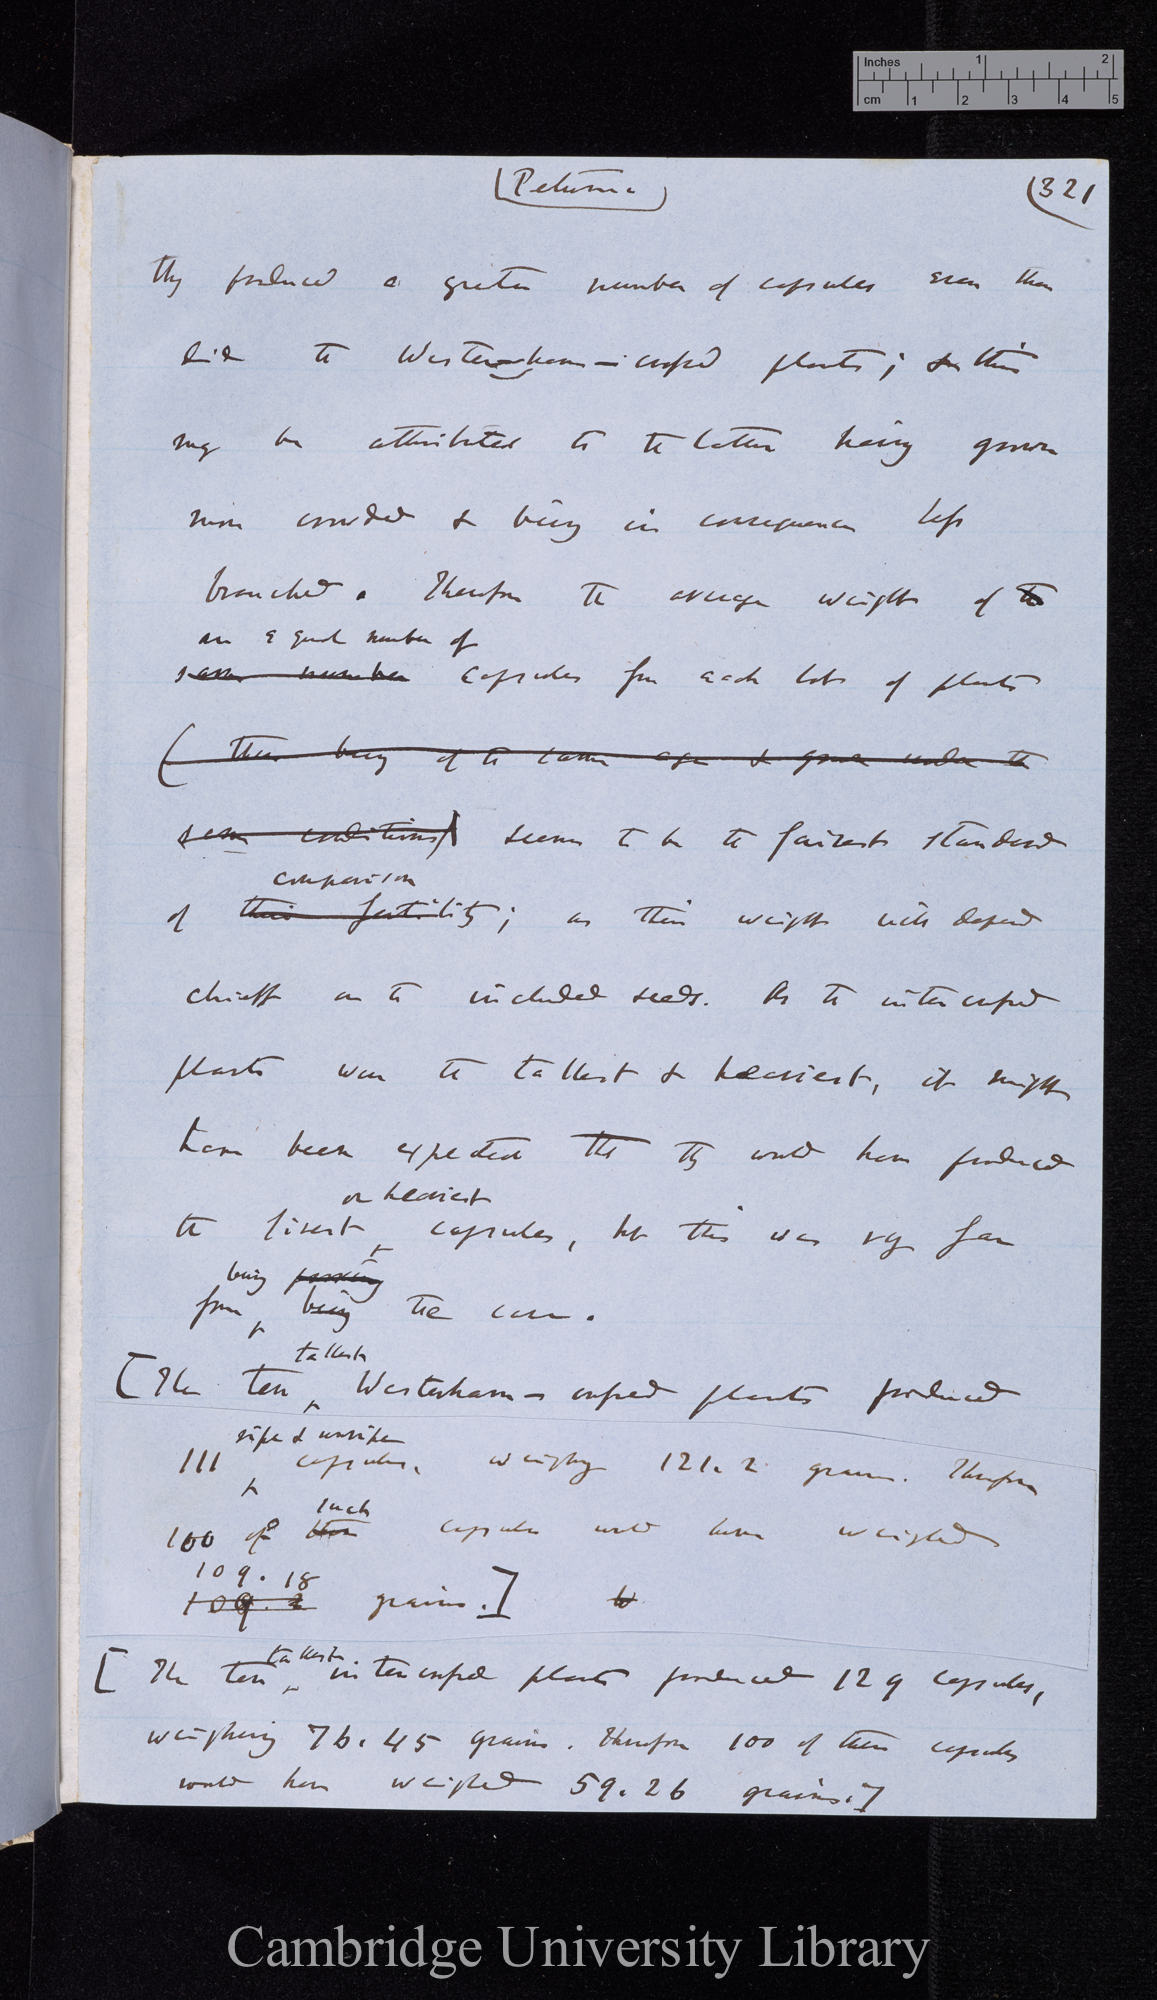 Inches 1 2
cm 1 2 3 4 5
Petunia
(321
they produced a greater number of capsules even than
did the Westerham-crossed plants; but this
may be attributed to the latter having grown
more crowded & being in consequence less
branched. Therefore the average weight of the
an equal number of
same number capsules from each lot of plants
( these being of the same age & grown under the
same conditions) seems to be the fairest standard
comparison
of their fertility; as their weight will depend
chiefly on the included seeds. As the intercrossed
plants were the tallest & heaviest, it might
have been expected that they would have produced
or heaviest
the finest capsules, but this was very far
being proving
from being the case.
tallest
[The ten Westerham-crossed plants produced
ripe & unripe
111 capsules, weighing 121.2 grains. Therefore
such
100 of these capsules would have weighed
109.18
109.2 grains.]
tallest
[The ten intercrossed plants produced 129 capsules,
weighing 76.45 grains. Therefore 100 of these capsules
would have weighed 59.26 grains.]
Cambridge University Library